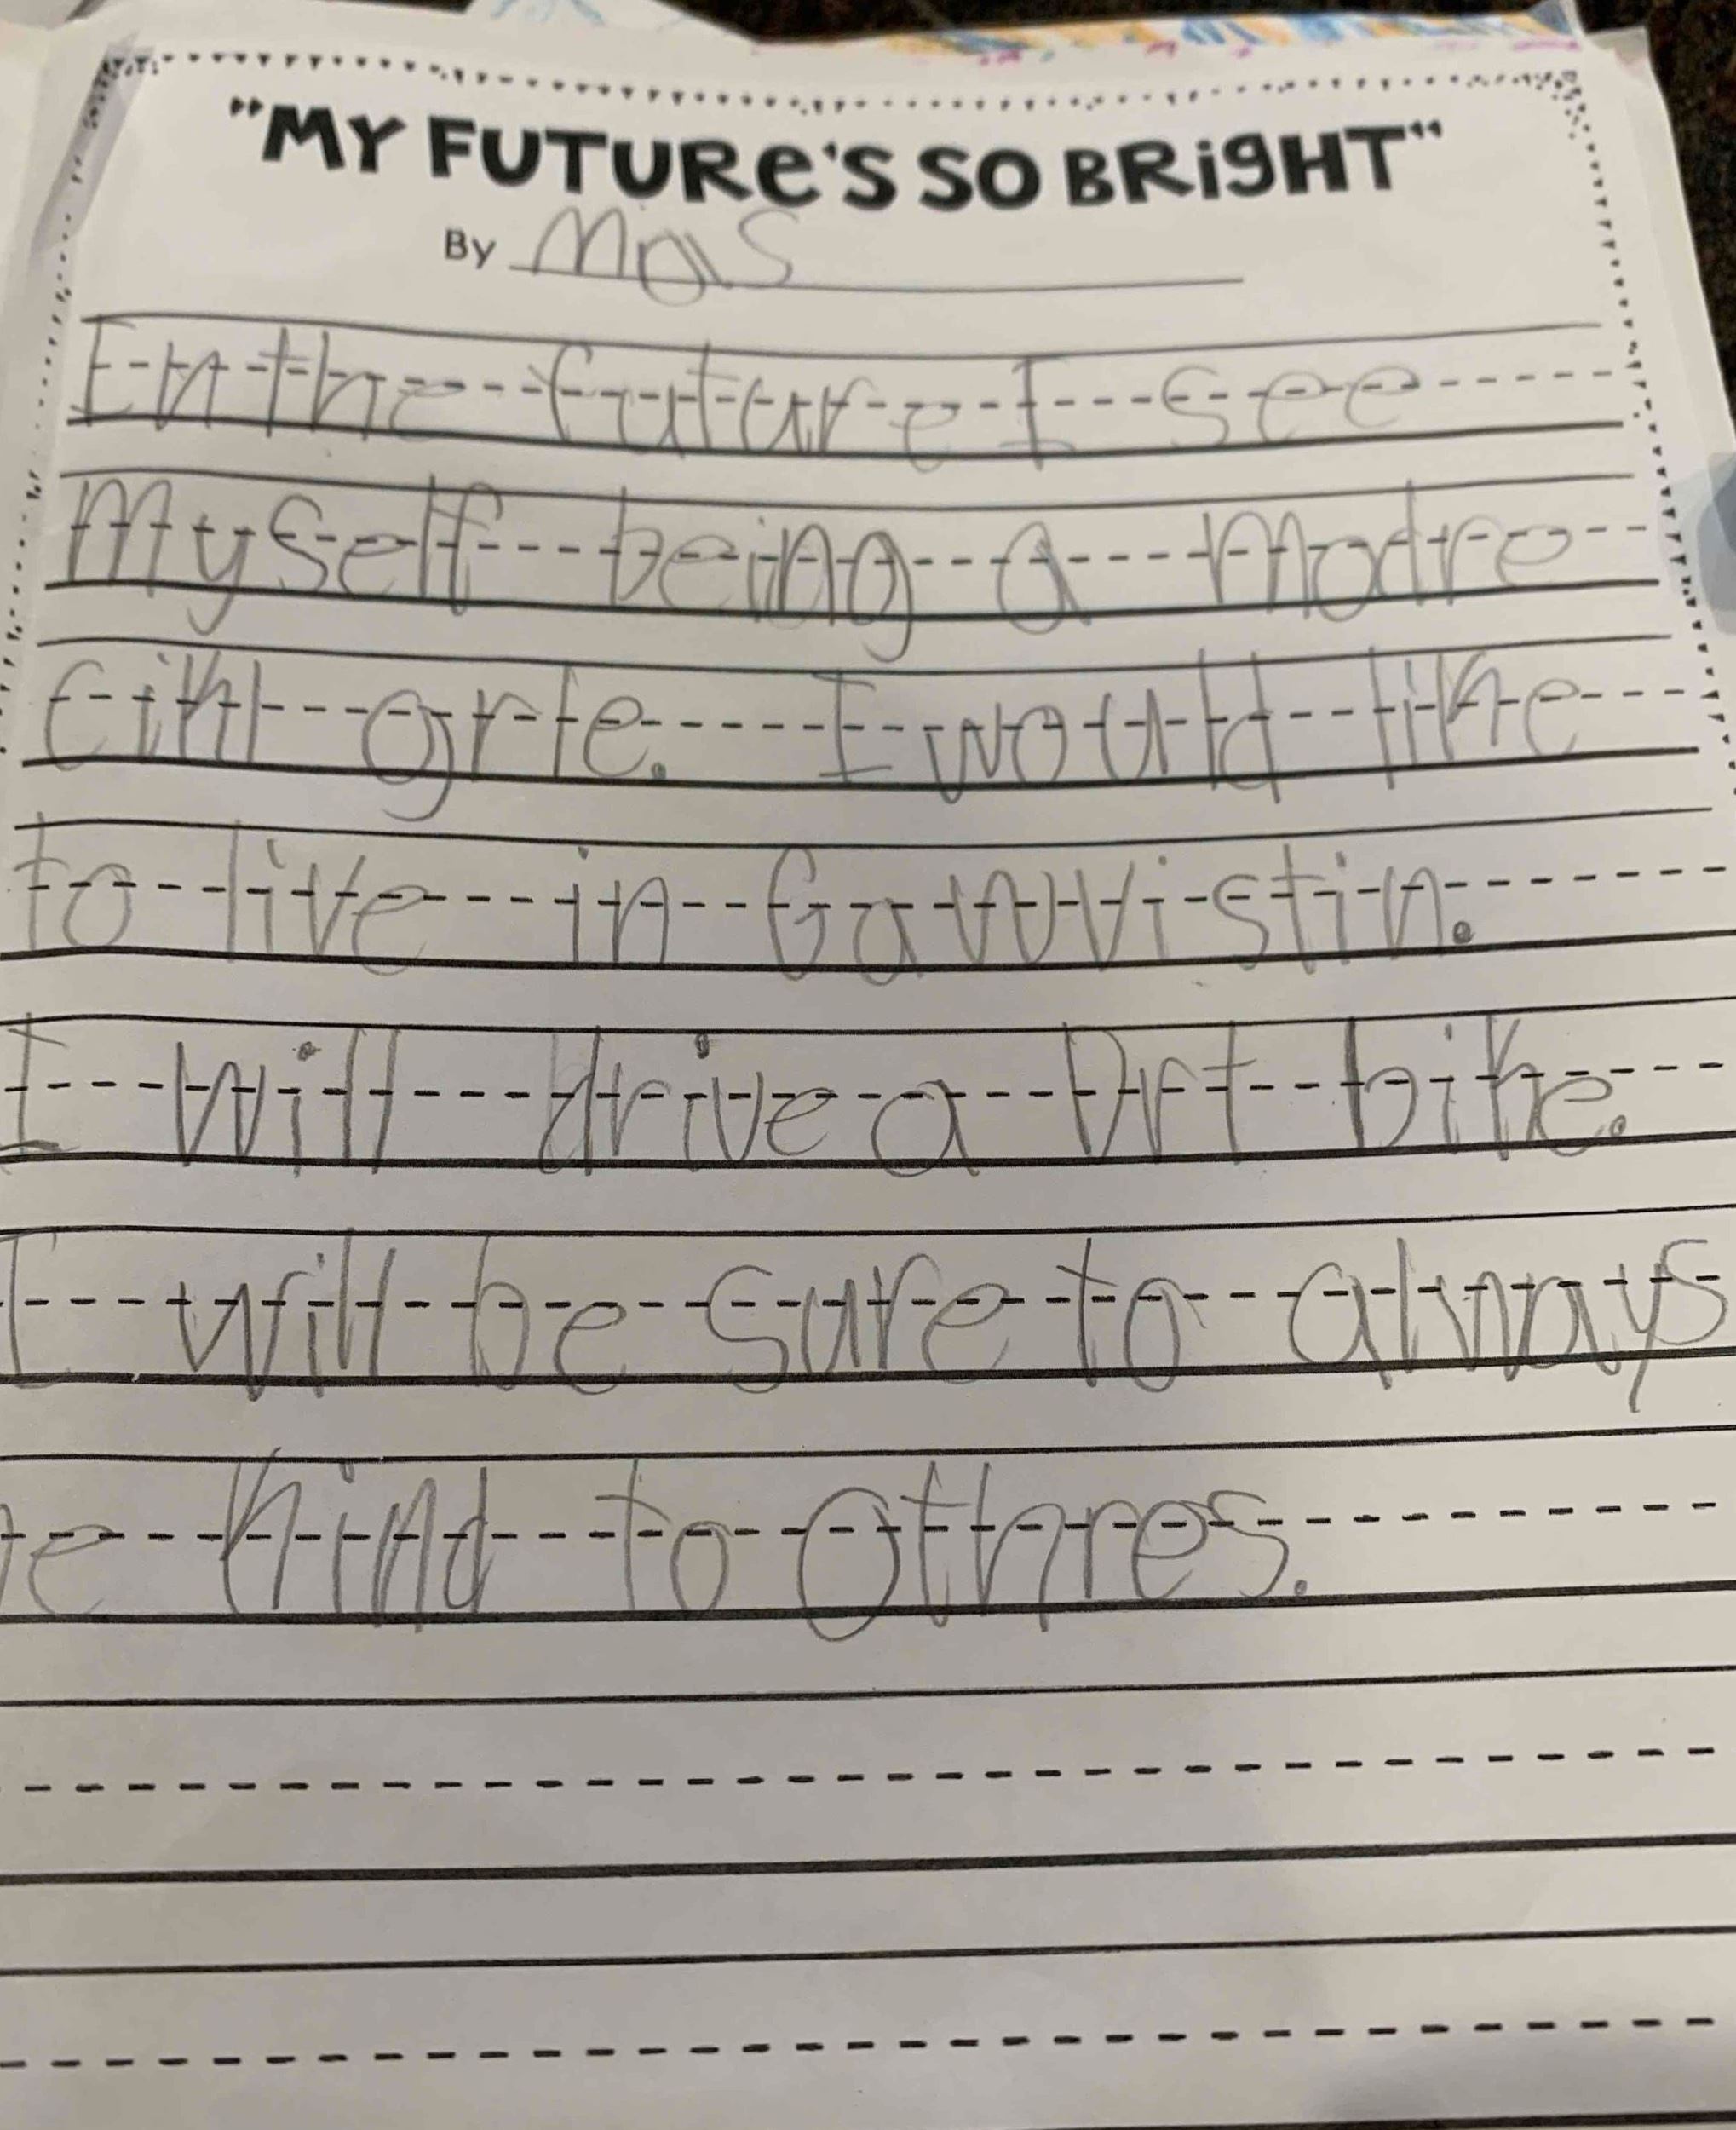 "MY FUTURe'S SO BRiGHT"
By
In the future I see
Myself being a modre
Cikl grle. I would like
to live in Gawvistin.
I will drive a Drt bike.
I will be sure to always
e kind to othres.